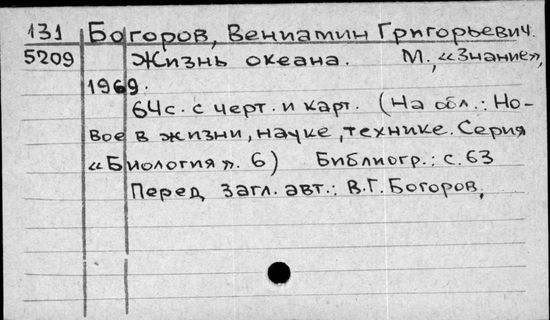 131 Богоров, Вениамин Григорьевич.
5209 Жизнь океана. М., «Знание»,
1969.
64с. с черт. и карт. (На обл.: Но-
вое в жизни, науке, технике. Серия
«Биология». 6) Библиогр.: с. 63
Перед загл. авт.: В.Г. Богоров,